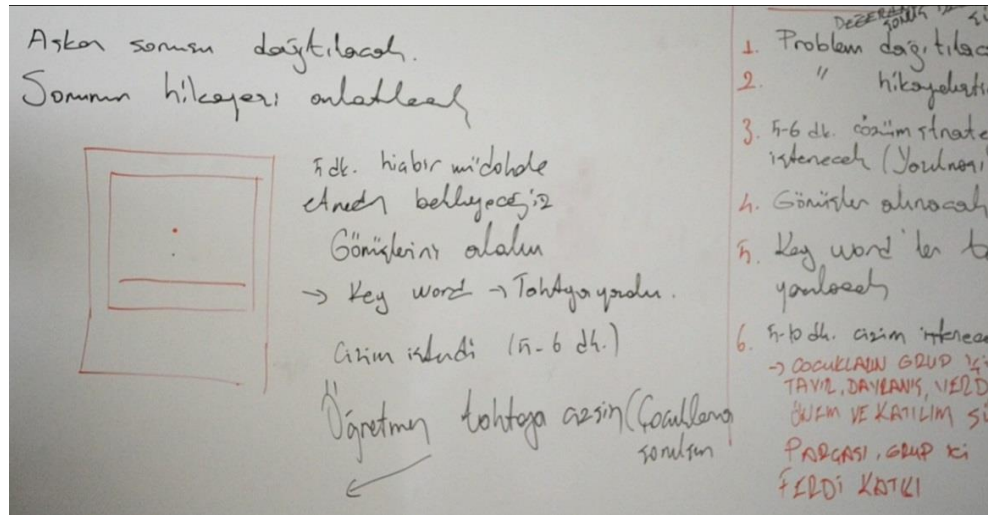 Asker sorusu dağıtılacak.
Sorunun hikayesi anlatılacak
5 dk. hiçbir müdahale
etmeden bekleyeceğiz
Görüşlerini alalım
→ Key word → Tahtaya yazdır.
Çizim istendi (5-6 dk.)
Öğretmen tahtaya çizsin (Çocuklara
sorulsun
1. Problem dağıtılac
2. " hikayeleşti
3. 5-6 dk. çözüm strate
istenecek (Yazılması
4. Görüşler alınacak
5. Key word'ler ta
yazılacak
6. 5-10 dk. çizim istenec
→ ÇOCUKLARIN GRUP İÇİ
TAVIR, DAVRANIŞ, VERD
ÖNEM VE KATILIM SÜ
PARÇASI, GRUP İÇİ
FERDİ KATKI